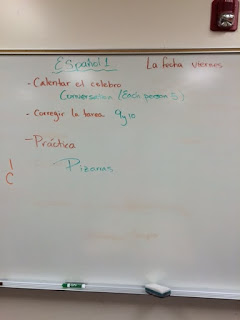 Español 1
La fecha viernes
- Calentar el celebro
Conversation (Each person 5)
- Corregir la tarea 9y10
- Práctica
Pizarras